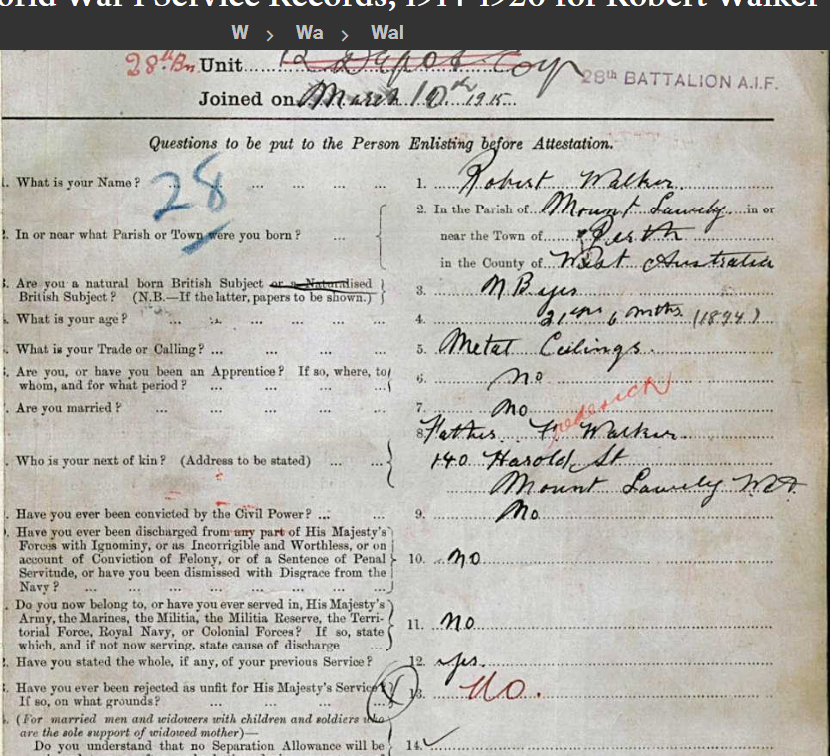 World War I Service Records, 1914-1920 for Robert Walker
W > Wa > Wal
28th Bn. Unit 12 Depot Coy 28th BATTALION A.I.F.
Joined on March 10th 1915
Questions to be put to the Person Enlisting before Attestation.
1. What is your Name? ... ... ... ... 1. Robert Walker
28
2. In the Parish of Mount Lawely in or
2. In or near what Parish or Town were you born? ... near the Town of Perth
in the County of West Australia
3. Are you a natural born British Subject or a Naturalised
British Subject? (N.B.—If the latter, papers to be shown.) 3. NB yes
4. What is your age? ... ... ... ... ... ... 4. 21 yrs 6 mths (1894)
5. What is your Trade or Calling? ... ... ... ... ... 5. Metal Ceilings
. Are you, or have you been an Apprentice? If so, where, to
whom, and for what period? ... ... ... ... 6. no
. Are you married? ... ... ... ... ... ... 7. No
Frederick
8. Father Fr Walker
. Who is your next of kin? (Address to be stated) ... ... 140 Harold St
Mount Lawely WA
. Have you ever been convicted by the Civil Power? ... ... 9. No
. Have you ever been discharged from any part of His Majesty's
Forces with Ignominy, or as Incorrigible and Worthless, or on
account of Conviction of Felony, or of a Sentence of Penal 10. no
Servitude, or have you been dismissed with Disgrace from the
Navy? ... ... ... ... ... ... ...
. Do you now belong to, or have you ever served in, His Majesty's
Army, the Marines, the Militia, the Militia Reserve, the Terri-
torial Force, Royal Navy, or Colonial Forces? If so, state 11. no
which, and if not now serving, state cause of discharge ...
. Have you stated the whole, if any, of your previous Service? 12. yes.
. Have you ever been rejected as unfit for His Majesty's Service? 13. No.
If so, on what grounds? ... ... ... ...
. (For married men and widowers with children and soldiers who
are the sole support of widowed mother)—
Do you understand that no Separation Allowance will be 14.